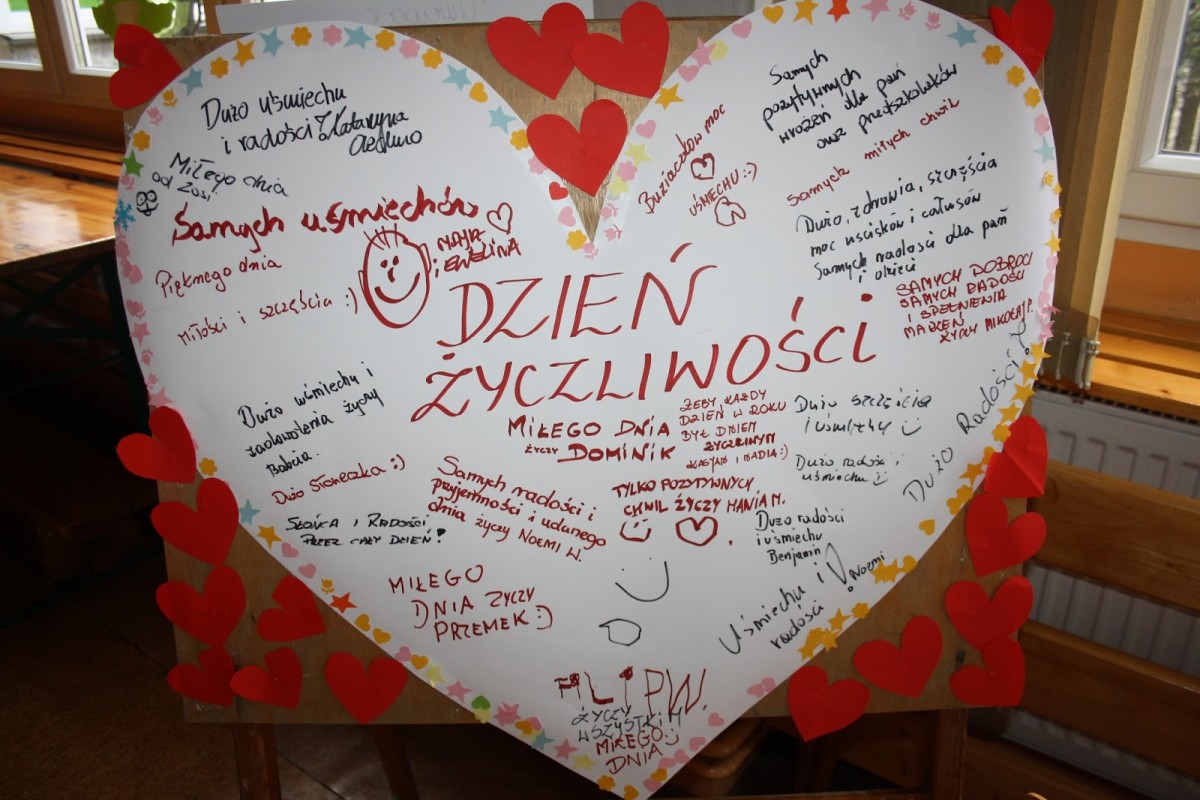 Dużo uśmiechu
i radości Katarzyna
Miłego dnia
od Zosi
Samych uśmiechów
MAJA
i EWELINA
Pięknego dnia
Miłości i szczęścia :)
Buziaczków moc
UŚMIECHU :)
Samych
pozytywnych
wrażeń dla pań
oraz przedszkolaków
Samych miłych chwil
Dużo, zdrowia, szczęścia
moc uścisków i całusów
Samych radości dla pań
i dzieci
SAMYCH DOBROCI
SAMYCH RADOŚCI
I SPEŁNIENIA
MARZEŃ
ŻYCZY MIKOŁAJ P.
DZIEŃ
ŻYCZLIWOŚCI
Dużo uśmiechu i
zadowolenia życzy
Babcia.
Dużo Słoneczka :)
SŁOŃCA I RADOŚCI
PRZEZ CAŁY DZIEŃ!
MIŁEGO DNIA
ŻYCZY DOMINIK
ŻEBY KAŻDY
DZIEŃ W ROKU
BYŁ DNIEM
ŻYCZLIWYM
I NADIA :)
Dużo szczęścia
i uśmiechu
Dużo radości i
uśmiechu
DUŻO RADOŚCI!
Samych radości i
przyjemności i udanego
dnia życzy NOEMI W.
TYLKO POZYTYWNYCH
CHWIL ŻYCZY HANIA M.
Dużo radości
i uśmiechu
Benjamin
MIŁEGO
DNIA ŻYCZY
PRZEMEK :)
Uśmiechu i
radości! Noemi
FILIP W.
ŻYCZY
WSZYSTKIM
MIŁEGO
DNIA